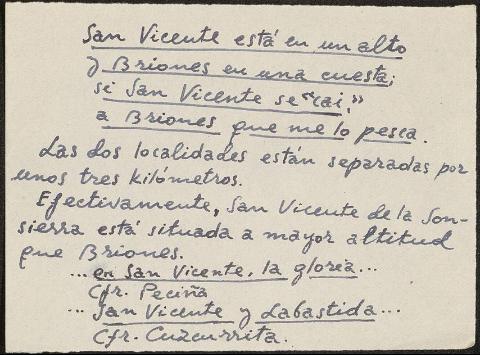 San Vicente está en un alto
y Briones en una cuesta;
si San Vicente se "cai,"
a Briones que me lo pesca.
Las dos localidades están separadas por
unos tres kilómetros.
Efectivamente, San Vicente de la Son-
sierra está situada a mayor altitud
que Briones.
...en San Vicente, la gloria...
Cfr. Peciña
...San Vicente y Labastida...
Cfr. Cuzcurrita.